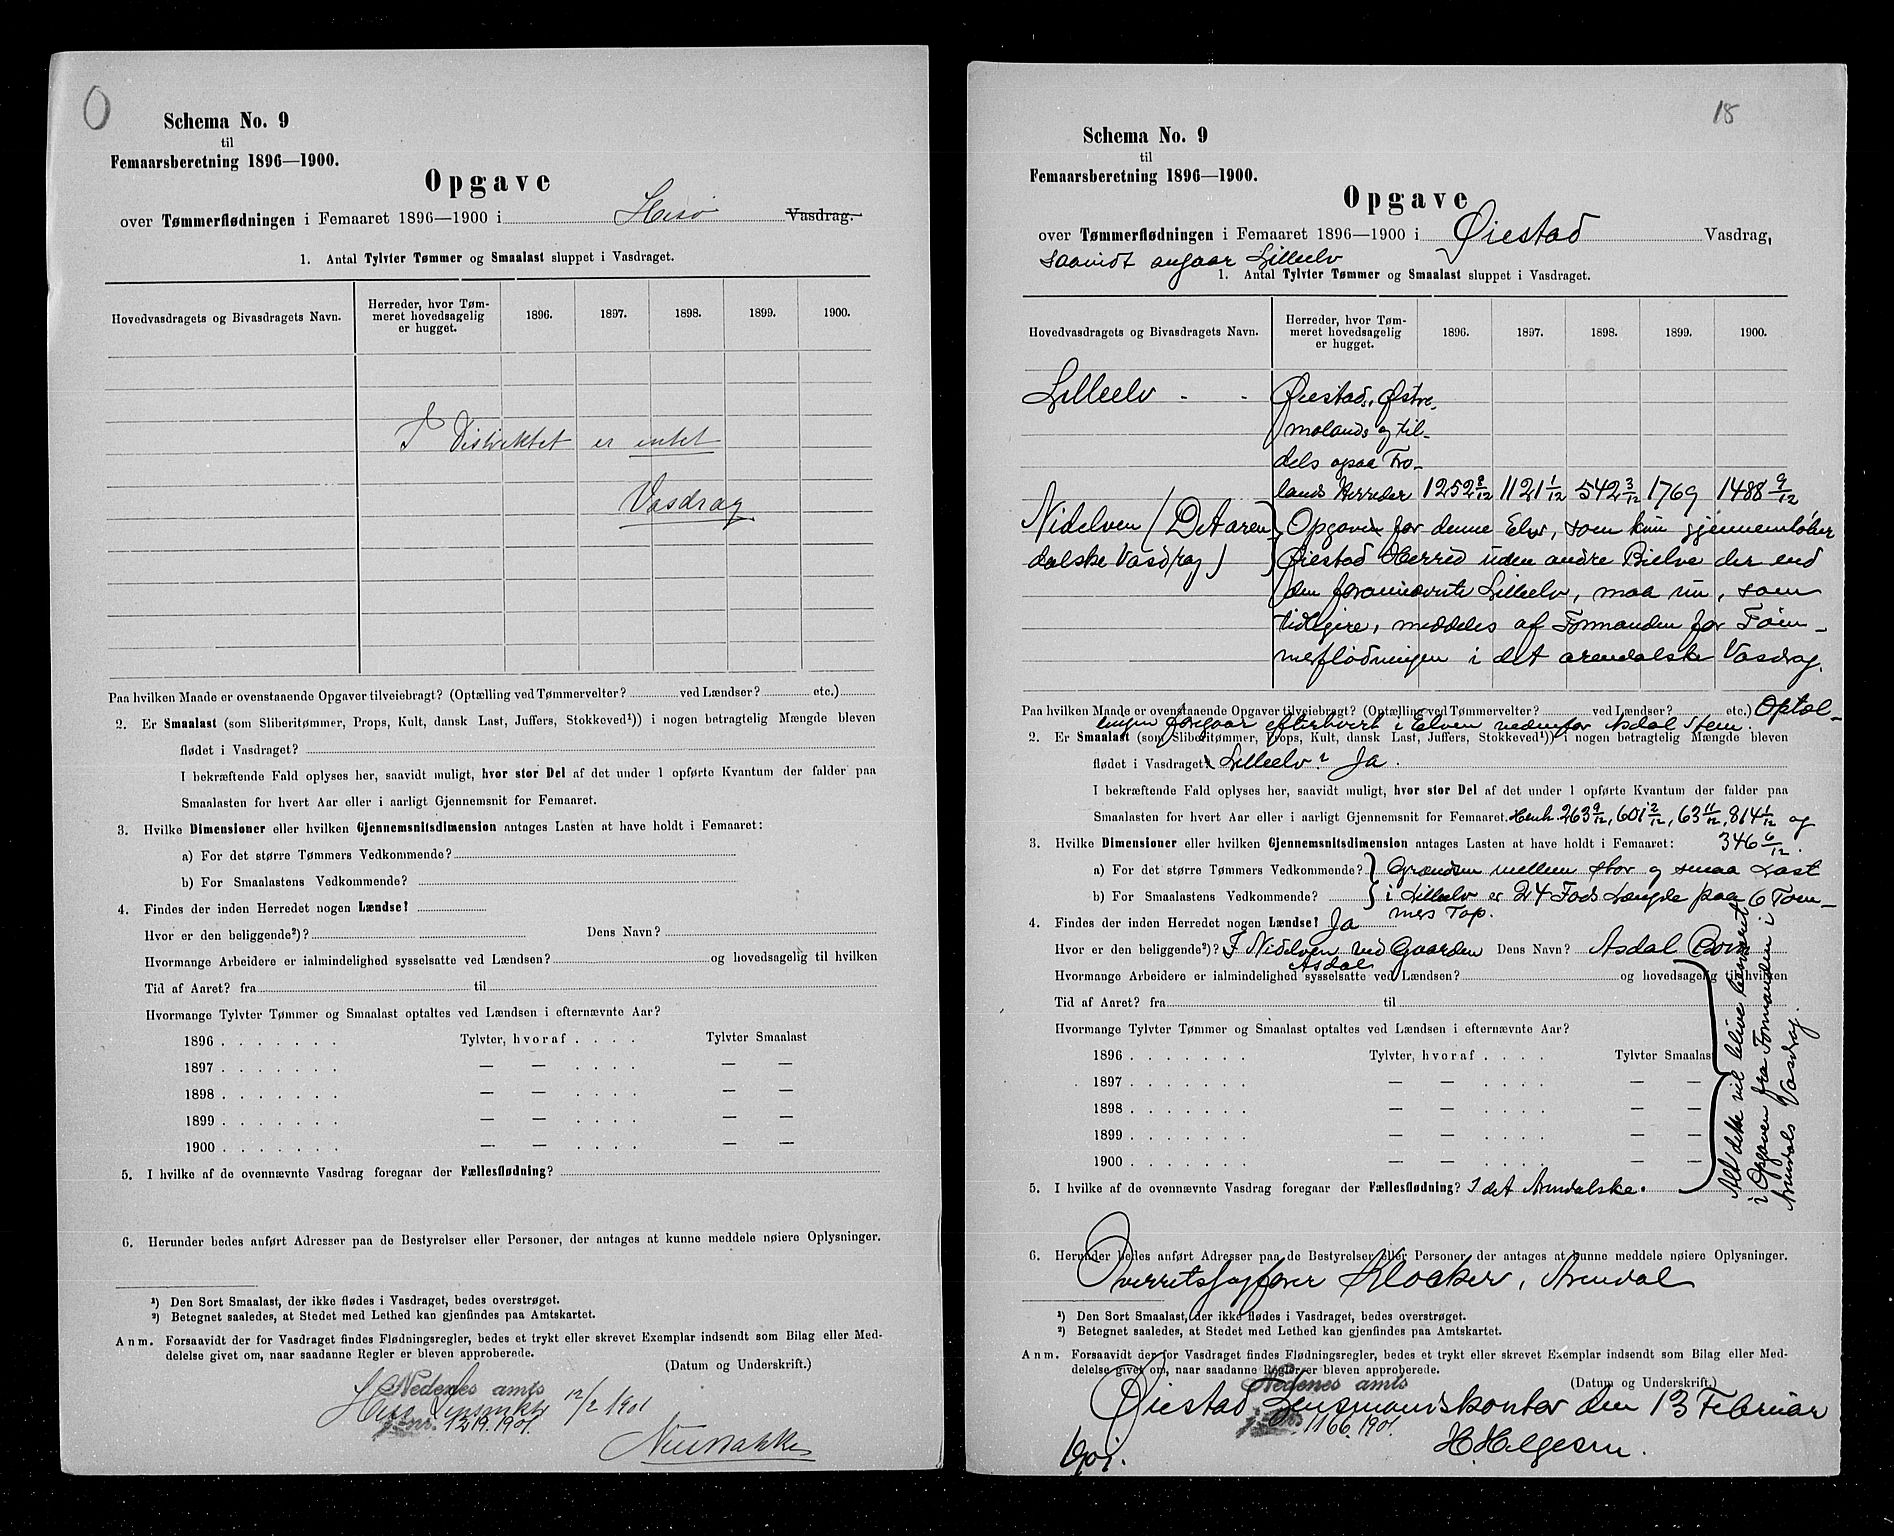 O
Schema No. 9
til
Femaarsberetning 1896—1900.
Opgave
over Tømmerflødningen i Femaaret 1896—1900 i Hisø Vasdrag.
1. Antal Tylvter Tømmer og Smaalast sluppet i Vasdraget.
Hovedvasdragets og Bivasdragets Navn.
Herreder, hvor Tøm-
meret hovedsagelig
er hugget.
1896. 1897. 1898. 1899. 1900.
I Distriktet er intet
Vasdrag.
Paa hvilken Maade er ovenstaaende Opgaver tilveiebragt? (Optælling ved Tømmervelter? ved Lændser? etc.)
2. Er Smaalast (som Sliberitømmer, Props, Kult, dansk Last, Juffers, Stokkeved¹)) i nogen betragtelig Mængde bleven
flødet i Vasdraget?
I bekræftende Fald oplyses her, saavidt muligt, hvor stor Del af det under 1 opførte Kvantum der falder paa
Smaalasten for hvert Aar eller i aarligt Gjennemsnit for Femaaret.
3. Hvilke Dimensioner eller hvilken Gjennemsnitsdimension antages Lasten at have holdt i Femaaret:
a) For det større Tømmers Vedkommende?
b) For Smaalastens Vedkommende?
4. Findes der inden Herredet nogen Lændse?
Hvor er den beliggende²)? Dens Navn?
Hvormange Arbeidere er ialmindelighed sysselsatte ved Lændsen? og hovedsagelig til hvilken
Tid af Aaret? fra til
Hvormange Tylvter Tømmer og Smaalast optaltes ved Lændsen i efternævnte Aar?
1896 . . . . . . . Tylvter, hvoraf . . . . Tylvter Smaalast
1897 . . . . . . . — — . . . . — —
1898 . . . . . . . — — . . . . — —
1899 . . . . . . . — — . . . . — —
1900 . . . . . . . — — . . . . — —
5. I hvilke af de ovennævnte Vasdrag foregaar der Fællesflødning?
6. Herunder bedes anført Adresser paa de Bestyrelser eller Personer, der antages at kunne meddele nøiere Oplysninger.
¹) Den Sort Smaalast, der ikke flødes i Vasdraget, bedes overstrøget.
²) Betegnet saaledes, at Stedet med Lethed kan gjenfindes paa Amtskartet.
Anm. Forsaavidt der for Vasdraget findes Flødningsregler, bedes et trykt eller skrevet Exemplar indsendt som Bilag eller Med-
delelse givet om, naar saadanne Regler er bleven approberede.
(Datum og Underskrift.)
Nedenes amts
12/2 1901
j. nr. 1219.1901.
18
Schema No. 9
til
Femaarsberetning 1896—1900.
Opgave
over Tømmerflødningen i Femaaret 1896—1900 i Øiestad Vasdrag,
saavidt angaar Lilleelv
1. Antal Tylvter Tømmer og Smaalast sluppet i Vasdraget.
Hovedvasdragets og Bivasdragets Navn.
Herreder, hvor Tøm-
meret hovedsagelig
er hugget.
1896. 1897. 1898. 1899. 1900.
Lilleelv - - Øiestads, Østre-
molands og til-
dels ogsaa Fro-
lands Herreder 1252 8/12 1121 1/12 542 3/12 1769 1488 9/12
Nidelven (Det aren- Opgaven for denne Elv, som kun gjennemløber
dalske Vasdrag) Øiestad Herred uden andre Bielve der end
den forannævnte Lilleelv, maa nu, som
tidligere, meddeles af Formanden for Tøm-
merflødningen i det arendalske Vasdrag.
Paa hvilken Maade er ovenstaaende Opgaver tilveiebragt? (Optælling ved Tømmervelter? ved Lændser? etc.) Optæl-
lingen foregaar efterhvert i Elven nedenfor Asdal Stem
2. Er Smaalast (som Sliberitømmer, Props, Kult, dansk Last, Juffers, Stokkeved¹)) i nogen betragtelig Mængde bleven
flødet i Vasdraget? Lilleelv? Ja.
I bekræftende Fald oplyses her, saavidt muligt, hvor stor Del af det under 1 opførte Kvantum der falder paa
Smaalasten for hvert Aar eller i aarligt Gjennemsnit for Femaaret. Henh. 263 9/12, 601 2/12, 63 11/12, 814 1/12 og
346 6/12.
3. Hvilke Dimensioner eller hvilken Gjennemsnitsdimension antages Lasten at have holdt i Femaaret:
a) For det større Tømmers Vedkommende? Grændsen mellem stor og smaa Last
b) For Smaalastens Vedkommende? i Lilleelv er 24 Fods Længde paa 6 Tom-
mers Top.
4. Findes der inden Herredet nogen Lændse? Ja
Hvor er den beliggende²)? I Nidelven ved Gaarden Asdal Dens Navn? Asdal Bom
Hvormange Arbeidere er ialmindelighed sysselsatte ved Lændsen? og hovedsagelig til hvilken
Tid af Aaret? fra til
Hvormange Tylvter Tømmer og Smaalast optaltes ved Lændsen i efternævnte Aar?
1896 . . . . . . . Tylvter, hvoraf . . . . Tylvter Smaalast
1897 . . . . . . . — — . . . . — —
1898 . . . . . . . — — . . . . — —
1899 . . . . . . . — — . . . . — —
1900 . . . . . . . — — . . . . — —
Alt dette vil blive besvaret
i Opgaven fra Formanden i
Arendals Vasdrag.
5. I hvilke af de ovennævnte Vasdrag foregaar der Fællesflødning? I det Arendalske.
6. Herunder bedes anført Adresser paa de Bestyrelser eller Personer, der antages at kunne meddele nøiere Oplysninger.
Overretssagfører Klocker, Arendal
¹) Den Sort Smaalast, der ikke flødes i Vasdraget, bedes overstrøget.
²) Betegnet saaledes, at Stedet med Lethed kan gjenfindes paa Amtskartet.
Anm. Forsaavidt der for Vasdraget findes Flødningsregler, bedes et trykt eller skrevet Exemplar indsendt som Bilag eller Med-
delelse givet om, naar saadanne Regler er bleven approberede.
(Datum og Underskrift.)
Nedenes amts
Øiestad Lensmandskontor den 13 Februar
j. nr. 1166.1901.
1901. H. Helgesen.